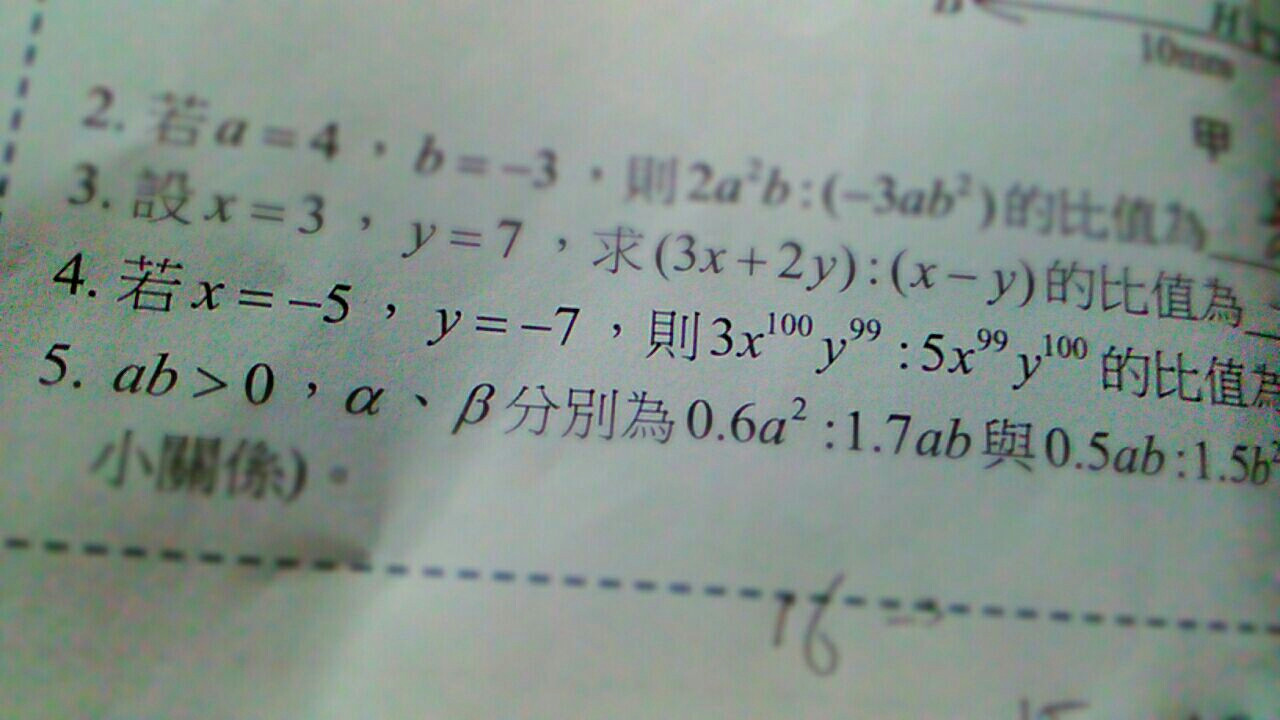 10mm
甲
2. 若a=4，b=-3，則2a²b:(-3ab²)的比值為
3. 設x=3，y=7，求(3x+2y):(x-y)的比值為
4. 若x=-5，y=-7，則3x¹⁰⁰y⁹⁹:5x⁹⁹y¹⁰⁰的比值為
5. ab>0，α、β分別為0.6a²:1.7ab與0.5ab:1.5b²
小關係)。
16